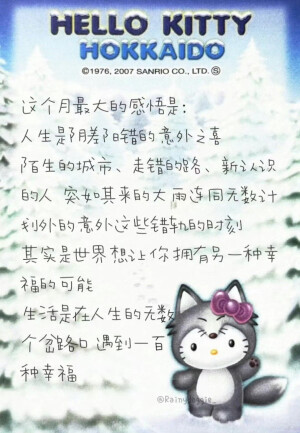 HELLO KITTY
HOKKAIDO
©1976, 2007 SANRIO CO., LTD. Ⓢ
这个月最大的感悟是：
人生是阴差阳错的意外之喜
陌生的城市、走错的路、新认识
的人 突如其来的大雨连同无数计
划外的意外这些错轨的时刻
其实是世界想让你拥有另一种幸
福的可能
生活是在人生的无数
个岔路口遇到一百
种幸福